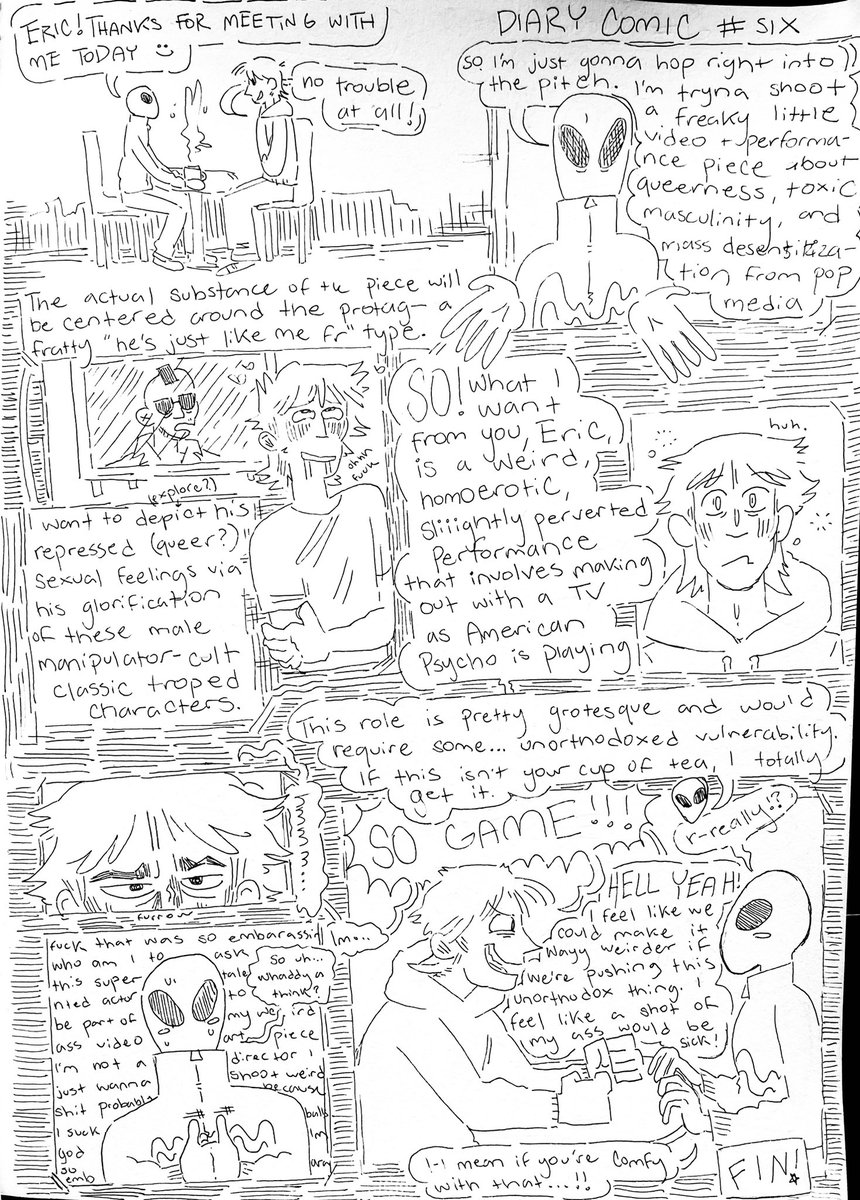 ERIC! THANKS FOR MEETING WITH
ME TODAY :)
no trouble
at all!
DIARY COMIC # SIX
so I'm just gonna hop right into
the pitch.
I'm tryna shoot
a freaky little
video + performa-
nce piece about
queerness, toxic
masculinity, and
mass desentiza-
tion from pop
media
The actual substance of the piece will
be centered around the protag- a
fratty "he's just like me fr" type.
ohhh
fuck
(explore?)
I want to depict his
repressed (queer?)
sexual feelings via
his glorification
of these male
manipulator-cult
classic troped
characters.
SO! What I
want
from you, Eric,
is a weird,
homoerotic,
sliiightly perverted
performance
that involves making
out with a TV
as American
Psycho is playing
huh.
This role is pretty grotesque and would
require some... unorthodoxed vulnerability.
If this isn't your cup of tea, I totally
get it.
furrow
I'm...
SO GAME!!!
r-really!?
fuck that was so embarassin
who am I to ask
this super tale
nted actor to
be part of my weird
ass video art piece
I'm not a director I
just wanna shoot weird
shit probably because
I suck balls
god Im
so
emb array
so uh...
whaddya
think?
HELL YEAH!
I feel like we
could make it
wayy weirder if
we're pushing this
unorthodox thing. I
feel like a shot of
my ass would be
sick!
I-I mean if you're comfy
with that...!!
FIN!